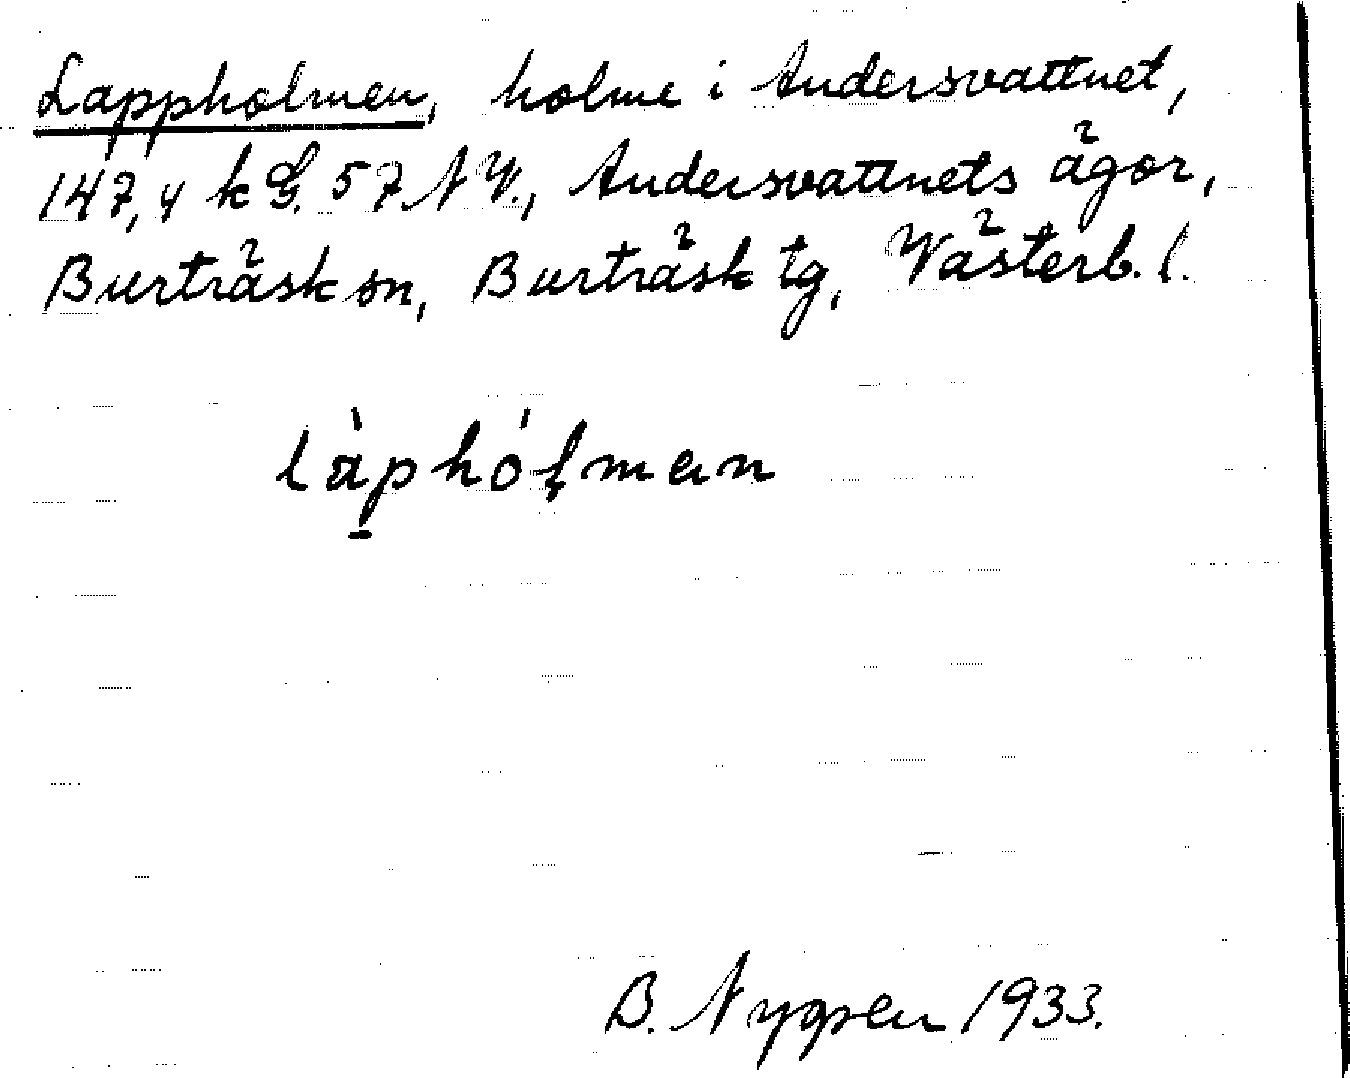 Lappholmen, holme i Andersvattnet,
147,4 k G. 57 NV., Andersvattnets ägor,
Burträsk sn, Burträsk tg, Västerb. l.
B. Nygren 1933.